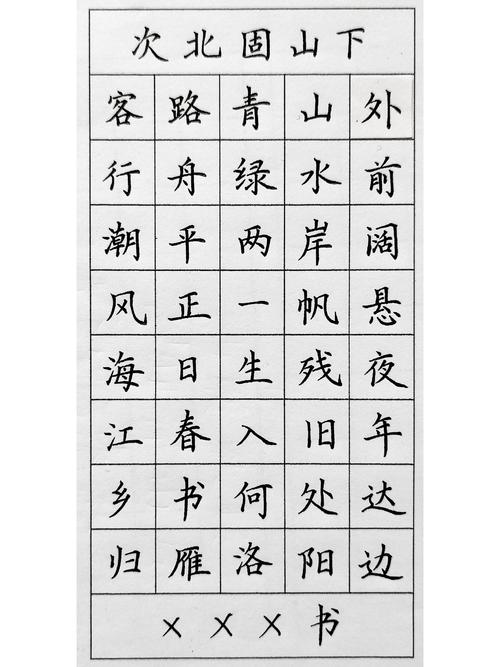 次北固山下
客路青山外
行舟绿水前
潮平两岸阔
风正一帆悬
海日生残夜
江春入旧年
乡书何处达
归雁洛阳边
×××书